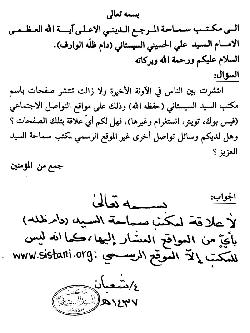 بسمه تعالى
الى مكتب سماحة المرجع الديني الاعلى آية الله العظمى
الامام السيد علي الحسيني السيستاني (دام ظله الوارف).
السلام عليكم ورحمة الله وبركاته
السؤال:
انتشرت بين الناس في الآونة الأخيرة ولا زالت تنتشر صفحات بأسم
مكتب السيد السيستاني (حفظه الله) وذلك على مواقع التواصل الاجتماعي
(فيس بوك، تويتر، انستغرام وغيرها)، فهل لكم أيّ علاقة بتلك الصفحات ؟
وهل لديكم وسائل تواصل أخرى غير الموقع الرسمي لمكتب سماحة السيد
العزيز ؟
جمع من المؤمنين
الجواب:
بسمه تعالى
لا علاقة لمكتب سماحة السيد (دام ظله)
بأيٍّ من المواقع المشار إليها، كما انه ليس
للمكتب إلّا الموقع الرسمي: www.sistani.org
٤/شعبان
١٤٣٧هـ